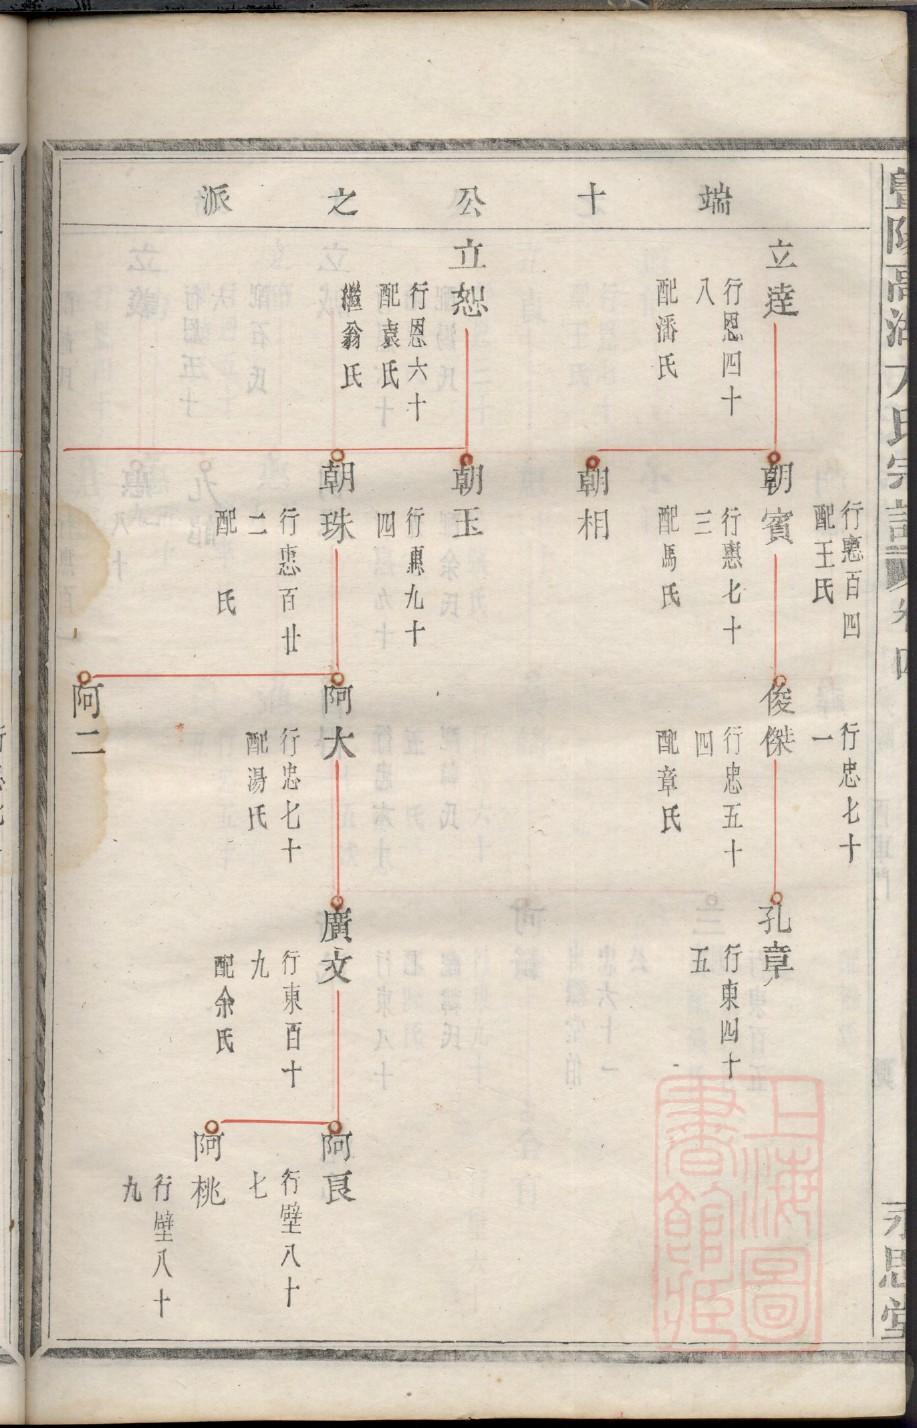 暨陽高湖方氏宗譜 卷四
永思堂
端十公之派
立達
行恩四十
八
配潘氏
立恕
行恩六十
配袁氏
繼翁氏
行惠百四
配王氏
朝賓
行惠七十
三
配馬氏
朝相
朝玉
行惠九十
四
朝珠
行惠百廿
二
配 氏
行忠七十
一
俊傑
行忠五十
四
配章氏
阿大
行忠七十
配湯氏
阿二
孔章
行東四十
五
廣文
行東百十
九
配余氏
阿良
行壁八十
七
阿桃
行壁八十
九
上海圖
書館藏